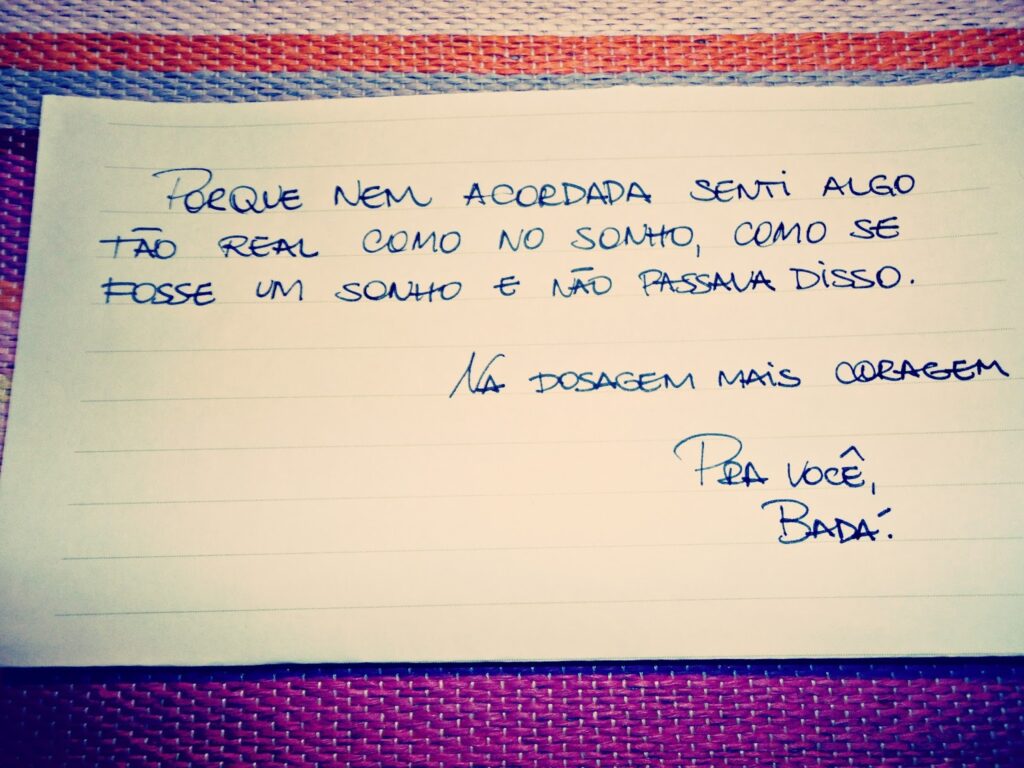 PORQUE NEM ACORDADA SENTI ALGO
TÃO REAL COMO NO SONHO, COMO SE
FOSSE UM SONHO E NÃO PASSAVA DISSO.
NA DOSAGEM MAIS CORAGEM
PRA VOCÊ,
BADÁ.